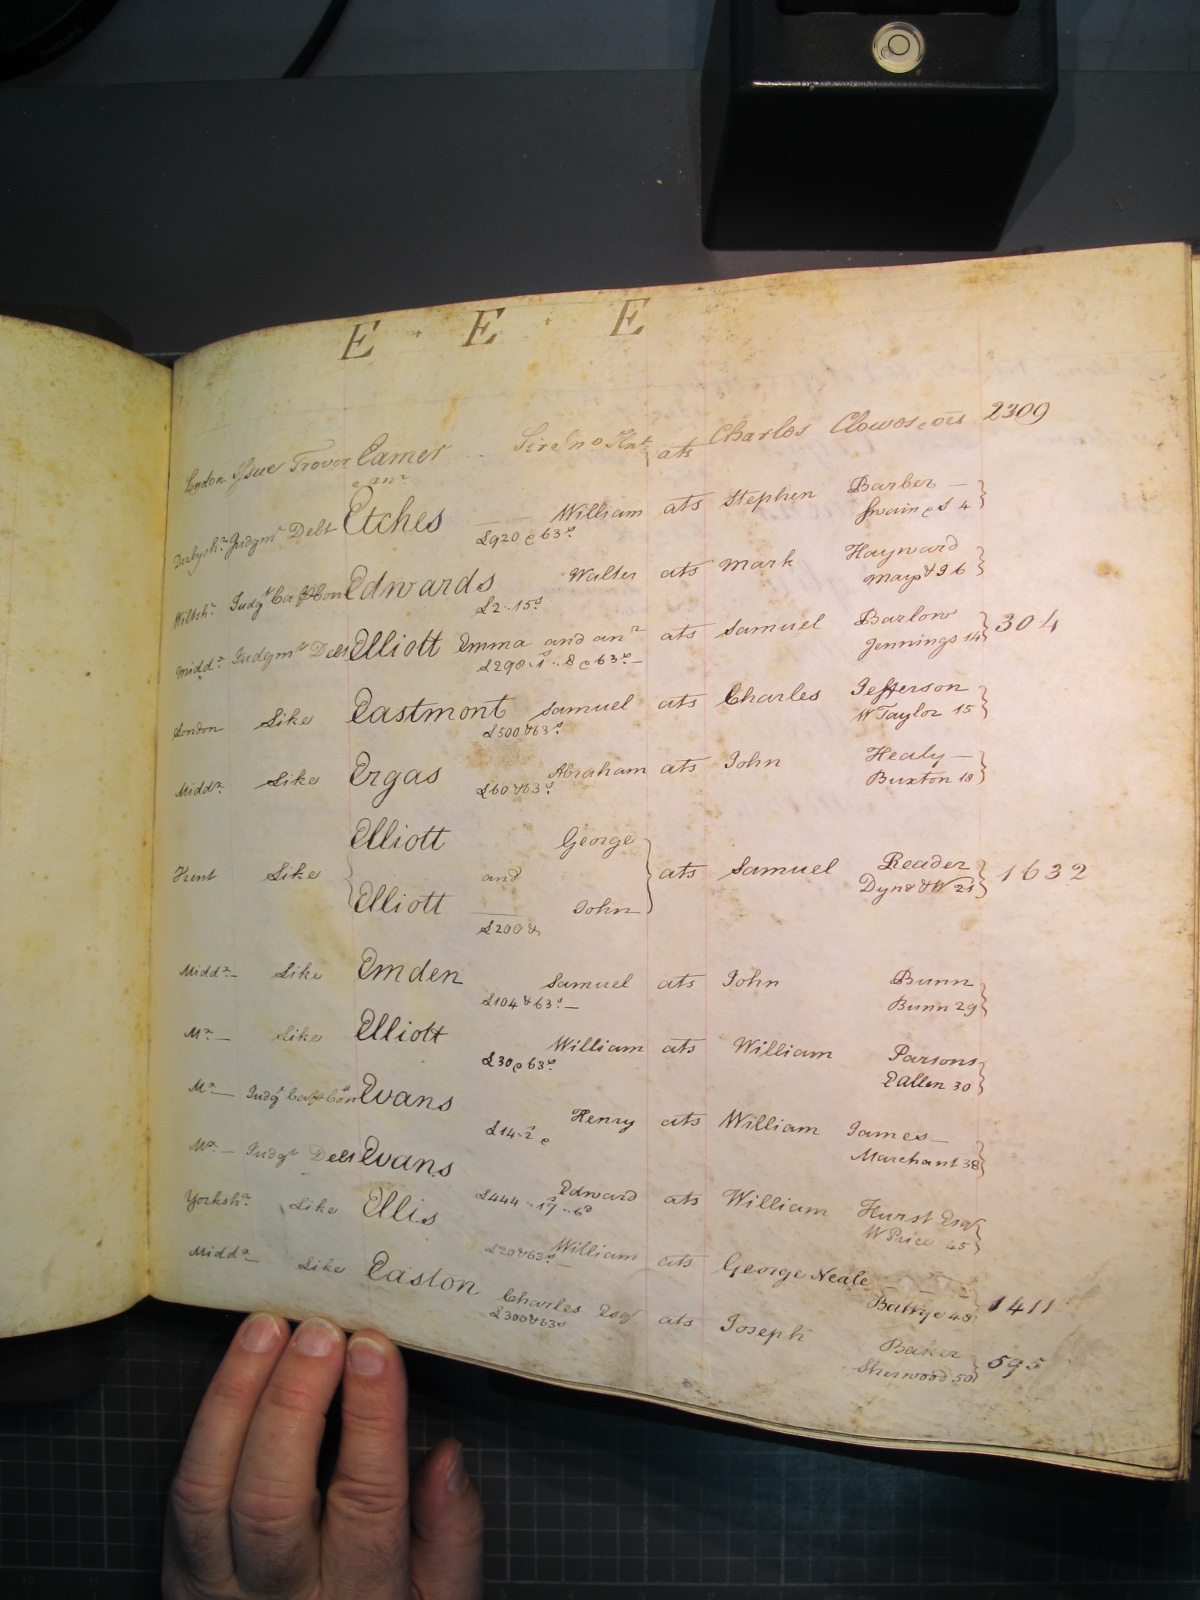 E E E
London Issue Trover Eamer Sir Jno Knt ats Charles Clowes e ors 2309
e anr
Derbyshr Judgmt Debt Etches William ats Stephen Barber
£920 e 63s Swain e S 4
Wiltshr Judgt Edwards Walter ats Mark Hayward
£2..15s Mays & S 6
Middx Judgmt Debt Elliott Emma and anr ats Samuel Barlow 304
£290..1..8 e 63s Jennings 14
London Like Eastmont Samuel ats Charles Jefferson
£500 & 63s W Taylor 15
Middx Like Ergas Abraham ats John Healy
£60 & 63s Buxton 18
Elliott George
Kent Like and ats Samuel Reader 1632
Dyne & W 21
Elliott John
£200 &
Middx Like Emden Samuel ats John Bunn
£104 & 63s Bunn 29
Mx Like Elliott William ats William Parsons
£30 e 63s Pallen 30
Mx Judgt Evans Henry ats William James
£14..2 e Marchant 38
Mx Judgt Debt Evans Edward ats William Hurst Esqr
£444..17..6 W Price 45
Yorkshr Like Ellis William ats George Neale
£20 & 63s Battye 48 1411
Middx Like Easton Charles Esqr ats Joseph Baker 595
£300 & 63s Sherwood 50